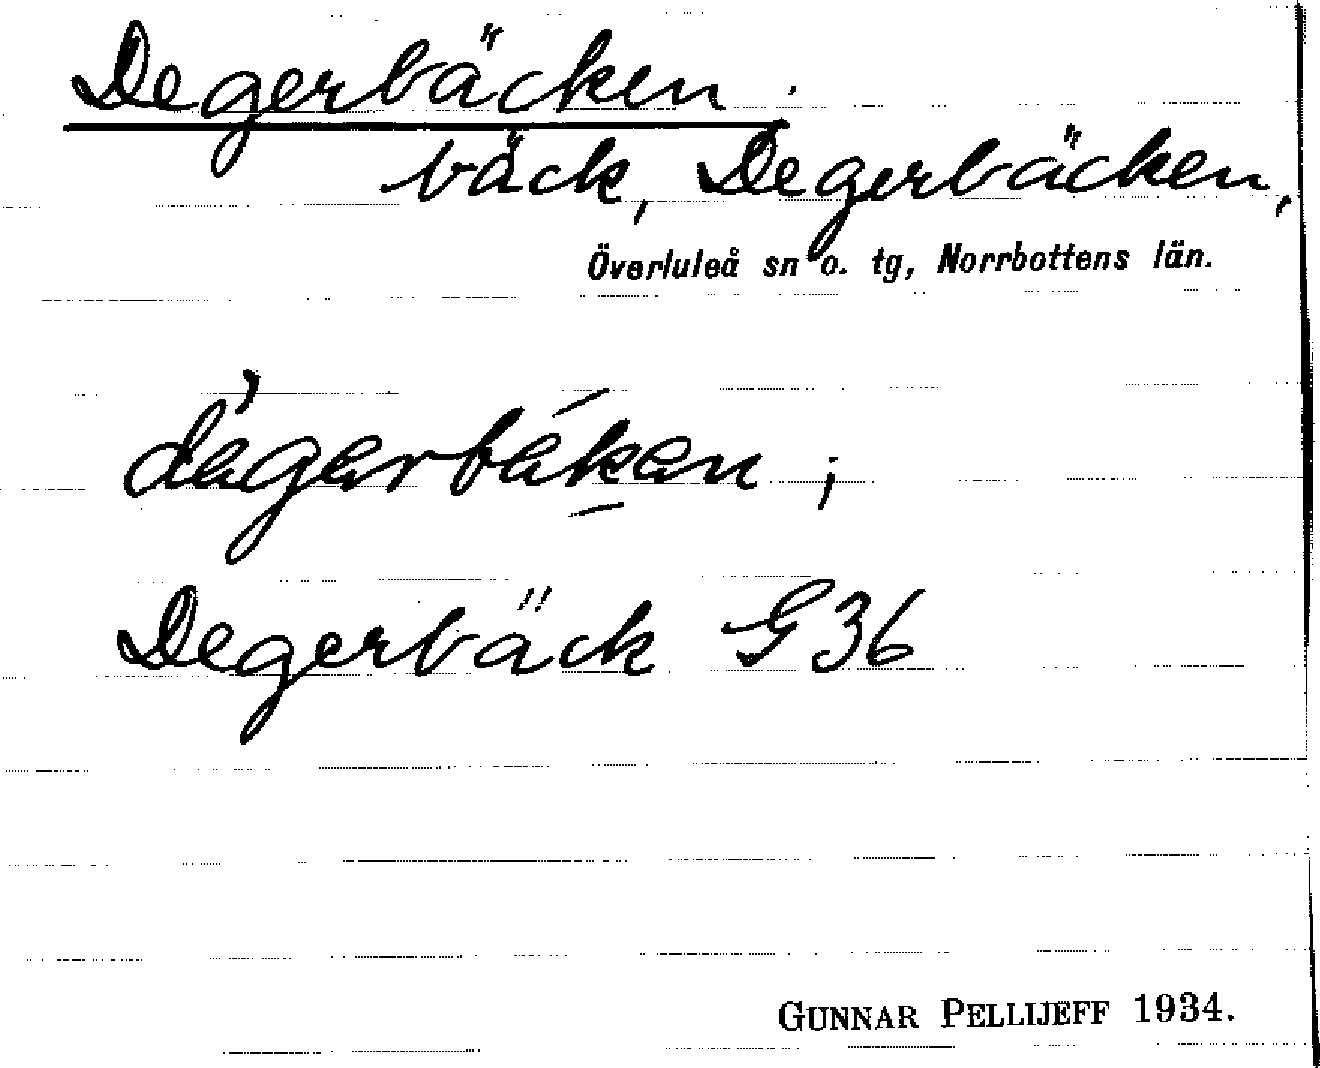 Degerbäcken.
bäck, Degerbäcken,
Överluleå sn o. tg, Norrbottens län.
Degerbäck G36
GUNNAR PELLIJEFF 1934.